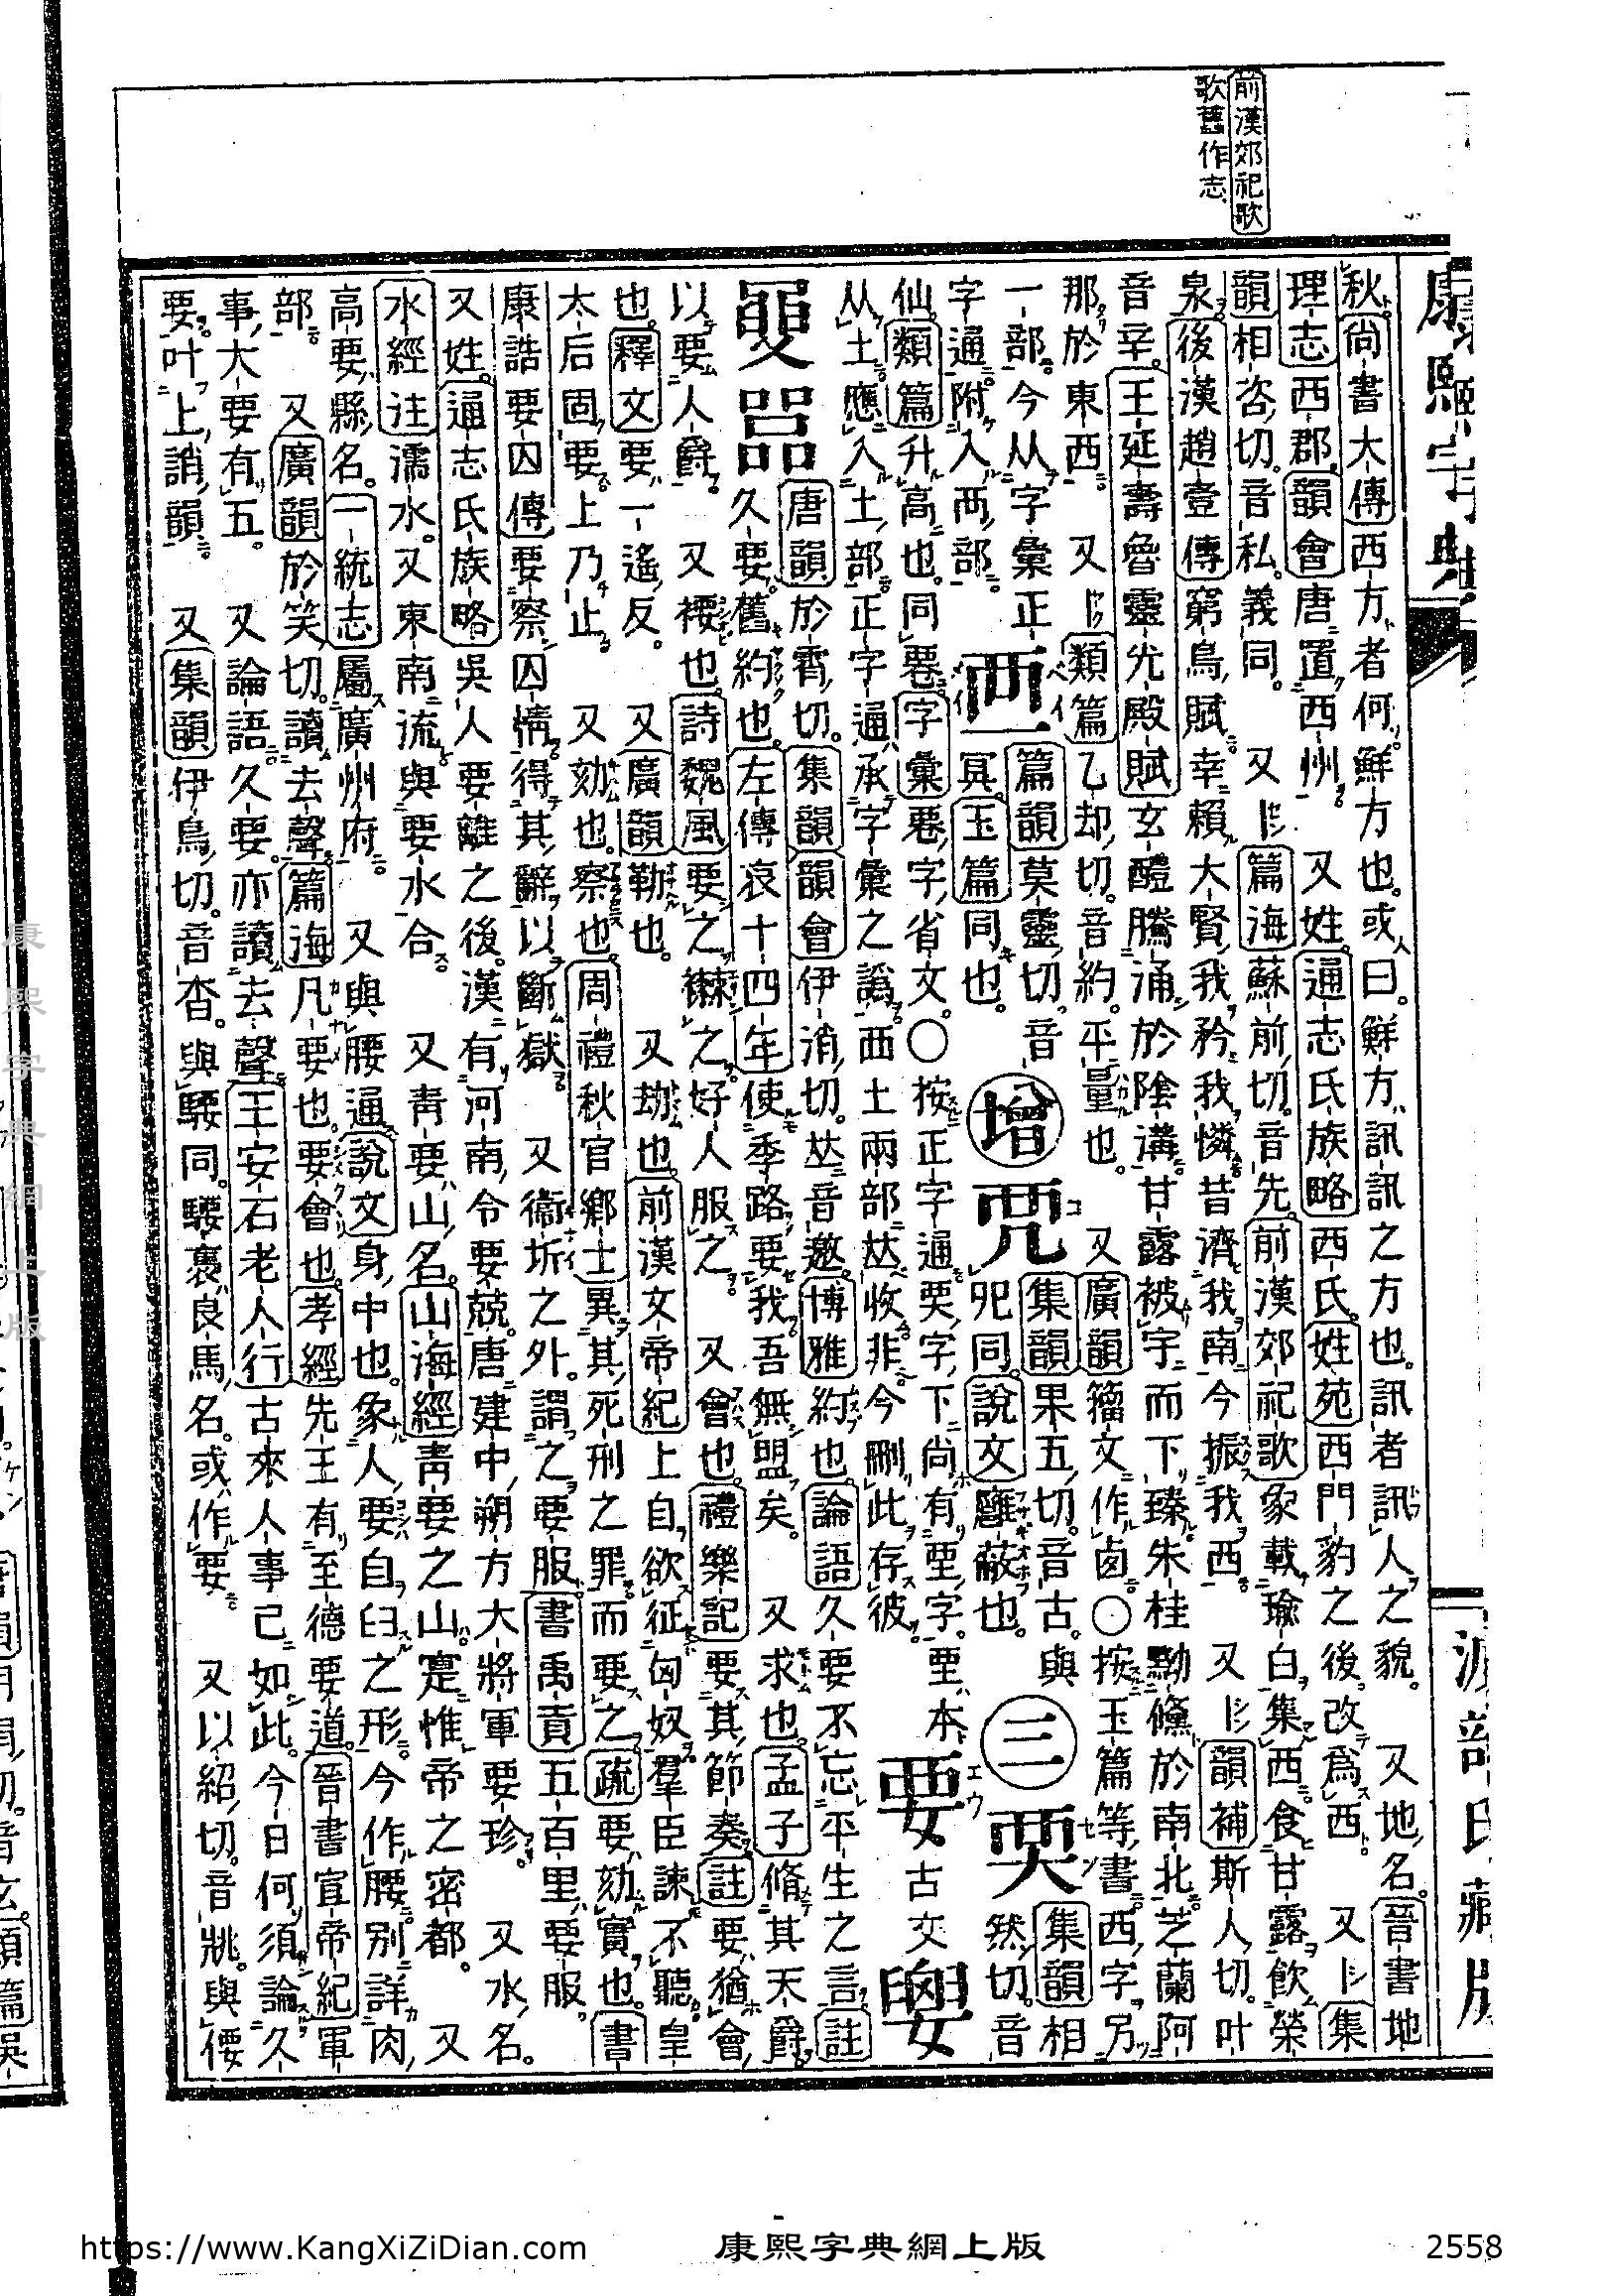 前漢郊祀歌
歌舊作志
康熙字典
秋尚書大傳西方者何鮮方也或曰鮮方訊訊之方也訊者訊人之貌 又地名晉書地
理志西郡韻會唐置西州 又姓通志氏族略西氏姓苑西門豹之後改爲西 又集
韻相咨切音私義同 又篇海蘇前切音先前漢郊祀歌象載瑜白集西食甘露飮榮
泉後漢趙壹傳窮鳥賦幸賴大賢我矜我憐昔濟我南今振我西 又韻補斯人切叶
音辛王延壽魯靈光殿賦玄醴騰涌於陰溝甘露被宇而下臻朱桂黝儵於南北芝蘭阿
那於東西 又類篇乙却切音約平量也 又廣韻籀文作卤○按玉篇等書西字另
一部今从字彙正 覀篇韻莫靈切音 增 㒵集韻果五切音古與 三 覀集韻相
字通附入襾部 具玉篇同也 兕同說文廱蔽也 然切音
仙類篇升高也同䙴字彙䙴字省文○按正字通覀字下尚有垔字垔本
从土應入土部正字通承字彙之譌西土兩部𠀤收非今刪此存彼 要 古文 𡢗
𡢘 𠾅 唐韻於霄切集韻韻會伊消切𠀤音邀博雅約也論語久要不忘平生之言註
久要舊約也左傳哀十四年使季路要我吾無盟矣 又求也孟子脩其天爵
以要人爵 又褄也詩魏風要之襋之好人服之 又會也禮樂記要其節奏註要猶會
也釋文要一遙反 又廣韻勒也 又劫也前漢文帝紀上自欲征匈奴羣臣諫不聽皇
太后固要上乃止 又劾也察也周禮秋官鄉士異其死刑之罪而要之疏要劾實也書
康誥要囚傳要察囚情得其辭以斷獄 又衞圻之外謂之要服書禹貢五百里要服
又姓通志氏族略吳人要離之後漢有河南令要兢唐建中朔方大將軍要珍 又水名
水經注濡水又東南流與要水合 又靑要山名山海經靑要之山寔惟帝之密都 又
高要縣名一統志屬廣州府 又與腰通說文身中也象人要自臼之形今作腰別詳肉
部 又廣韻於笑切讀去聲篇海凡要也要會也孝經先王有至德要道晉書宣帝紀軍
事大要有五 又論語久要亦讀去聲王安石老人行古來人事已如此今日何須論久
要叶上誚韻 又集韻伊鳥切音杳與騕同騕褭良馬名或作要 又以紹切音𦨖與偠
https://www.KangXiZiDian.com
康熙字典網上版
2558